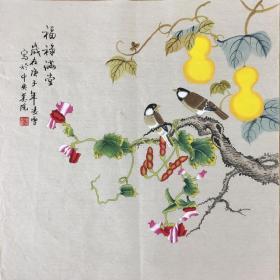 福禄满堂
岁在庚子年春雪
写于中央美院